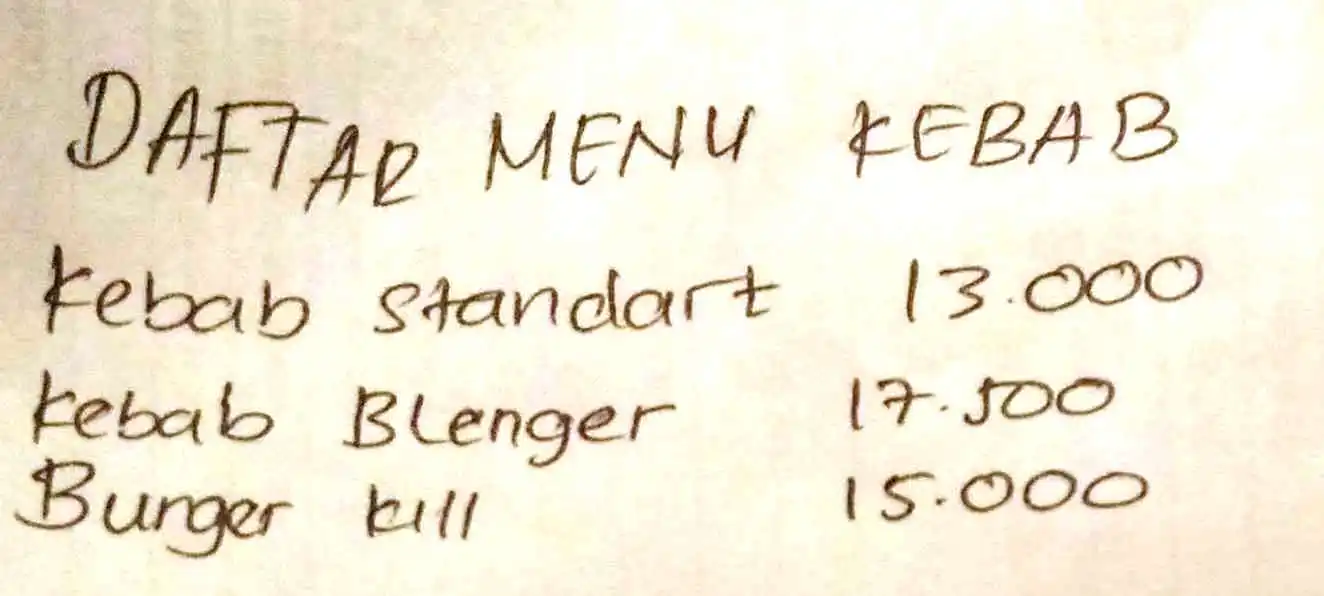 DAFTAR MENU KEBAB
Kebab standart 13.000
Kebab Blenger 17.500
Burger kill 15.000